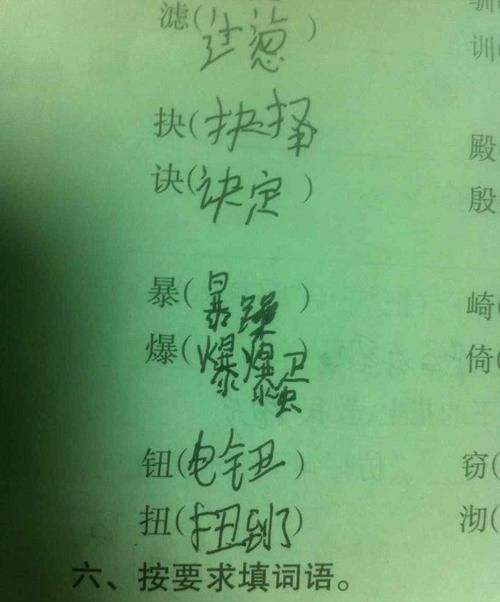 滤(过滤) 驯
训
抉(抉择) 殿
诀(诀定) 殷
暴(暴躁) 崎(
爆(爆爆) 倚(
钮(电钮) 窃(
扭(扭到了) 沏(
六、按要求填词语。